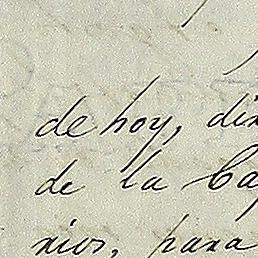 de hoy, di
de la Ca
nios, para